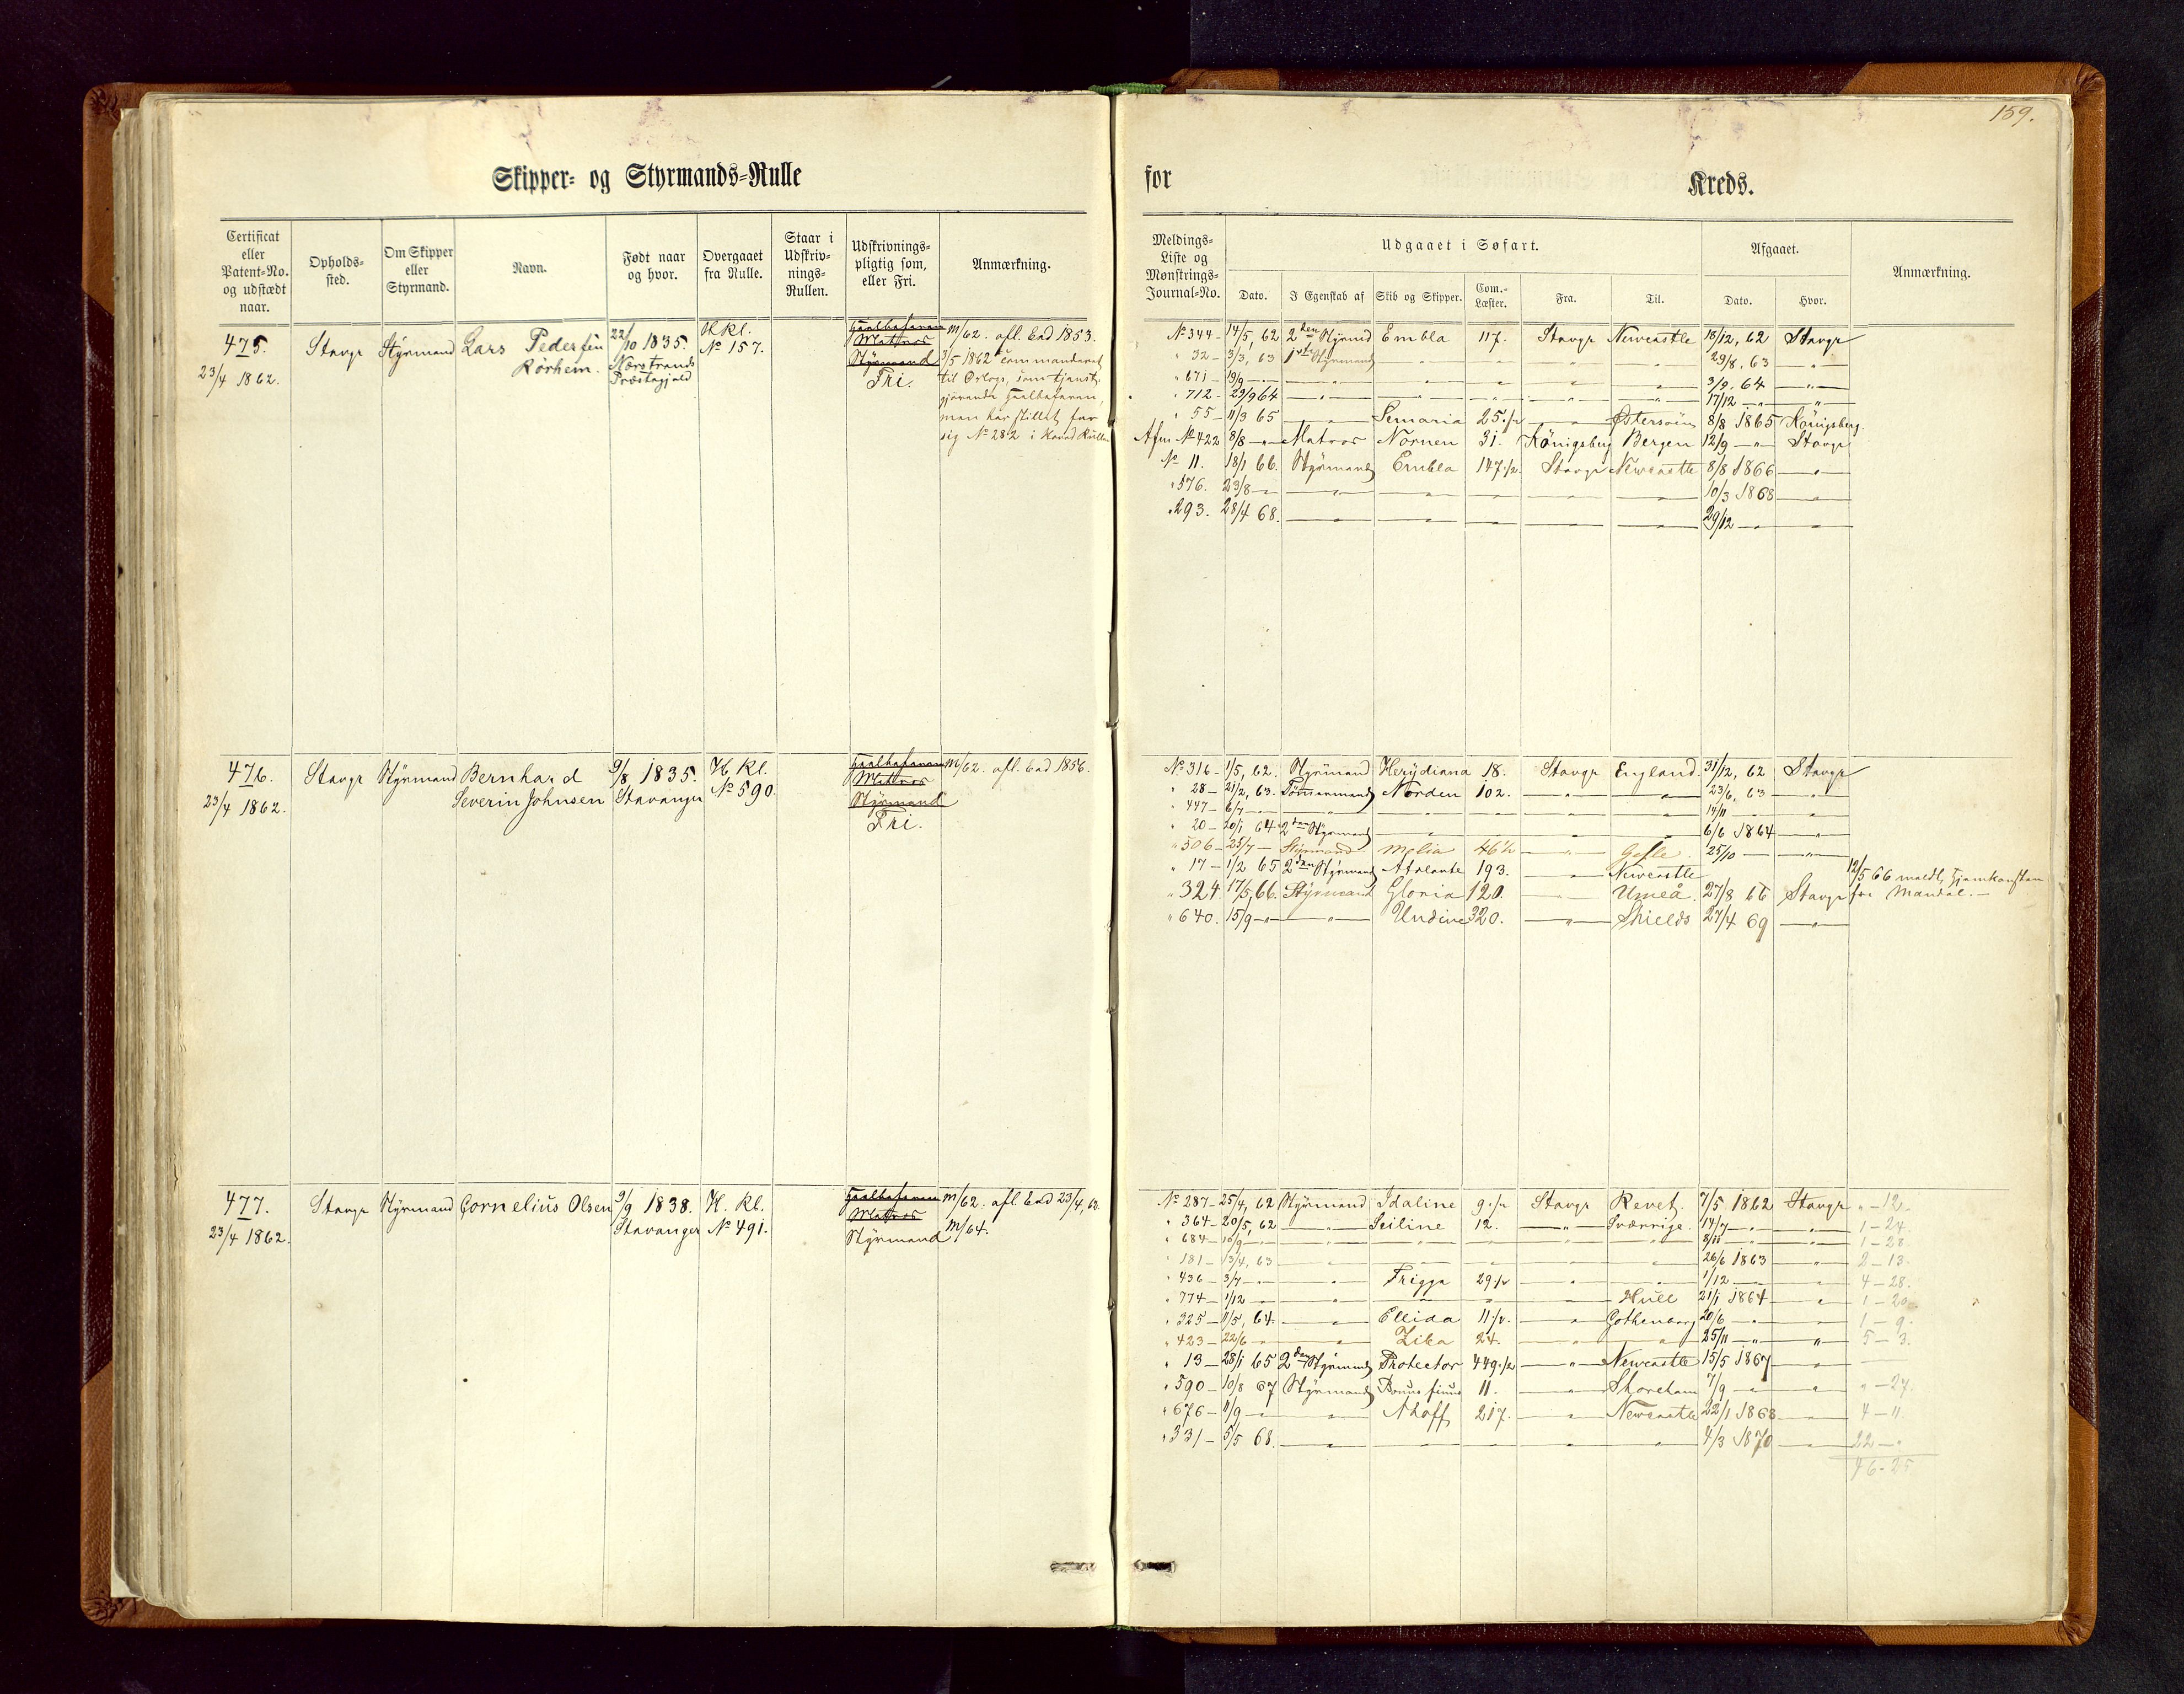 159.
Skipper- og Styrmands-Rulle
for Kreds.
Certificat eller Patent-No. og udstædt naar.
Opholds-sted.
Om Skipper eller Styrmand.
Navn.
Født naar og hvor.
Overgaaet fra Rulle.
Staar i Udskriv-nings-Rullen.
Udskrivnings-pligtig som, eller Fri.
Anmærkning.
Meldings-Liste og Mønstrings-Journal-No.
Udgaaet i Søfart.
Dato. I Egenskab af Skib og Skipper. Com.-Læster. Fra. Til.
Afgaaet.
Dato. Hvor.
Anmærkning.
475.
23/4 1862.
Stavgr
Styrmand
Lars Pedersen
Rørheim.
22/10 1835.
Nærstrands
Præstegjeld
H Kl.
No 157.
Matros
Styrmand
Fri.
m/62. afl. Eed 1853.
3/5 1862 commanderet
til Orlogs, som tjenst-
gjørende
men har stillet for
sig No 282 i Hoved Rullen
No 344 - 14/5, 62 2den Styrmd Embla 117. Stavgr Newcastle 18/12, 62 Stavgr
" 32 - 3/3, 63 1ste Styrmand " " " " 29/8, 63 "
" 671 - 19/9 - " " " " " 3/2, 64 "
" 712 - 29/9 64 " " " " " 17/12 - " "
" 55 - 11/3 65 " Semaria 25 1/2 " Østersøen 8/8 1865 Königsberg.
Afm No 422 8/8 - " Matros Nornen 31. Königsberg Bergen 12/9 - " Stavgr
No 11. 18/1 66. Styrmand Embla 147 1/2. Stavgr Newcastle 8/8 1866 "
" 576. 23/8 - " " " " " 10/3 1868 "
" 293. 28/4 68. " " " " " 29/12 - " "
476.
23/4 1862.
Stavgr
Styrmand
Bernhard
Severin Johnsen
9/8 1835.
Stavanger
H Kl.
No 590.
Matros
Styrmand
Fri.
m/62. afl. Eed 1856.
No 316 - 1/5, 62. Styrmand Herydiana 18. Stavgr England. 31/12, 62 Stavgr
" 28 - 21/2, 63. Tømmermand Norden 102. " " 23/6, 63 "
" 447 - 6/7 - " " " " " 14/11 "
" 20 - 20/1 64 2den Styrmand " " " " 6/6 1864 "
" 506 - 25/7 - Styrmand Melia 46 1/2 " Gefle. 25/10 - "
" 17 - 1/2 65 2den Styrmand Atalante 193. " Newcastle
12/5 66 meldt, Hjemkomsten
fra Mandal. -
" 324. 17/5, 66. Styrmand Gloria 120. " Umeå. 27/8 66 Stavgr
" 640. 15/9 - " " Undine 320. " Shields 27/4 69 "
477.
23/4 1862.
Stavgr
Styrmand
Cornelius Olsen
9/9 1838.
Stavanger
H. Kl.
No 491.
Matros
Styrmand
m/62. afl. Eed 23/4, 62.
m/64.
No 287 - 25/4, 62 Styrmand Idaline 9 1/2 Stavgr Revet. 7/5 1862 Stavgr " - 12.
" 364 - 20/5, 62 " Seiline 12. " Sværrige. 14/7 - " " 1 - 24.
" 684 - 10/9 - " " " " " 8/11 - " " 1 - 28.
" 181 - 13/4, 63 " " " " " 26/6 1863 " 2 - 13.
" 436 - 3/7 - " " Frigga 29 1/2 " " 1/12 - " 4 - 28.
" 774 - 1/12 - " " " " " Hull 21/1 1864 " 1 - 20.
" 325 - 11/5, 64. " Ellida 11 1/2. " Gothenborg 20/6 - " " 1 - 9.
" 423 - 22/6 - " " Ziba 24. " " 25/11 - " " 5 - 3.
" 13 - 28/1 65 2den Styrmand Protector 449 1/2 " Newcastle 15/5 1867 "
" 590 - 10/8 67 Styrmand 11. " Shoreham 7/9 - " " " - 27.
" 676 - 11/9 - " " Ahoff 217. " Newcastle 22/1 1868 " 4 - 11.
" 331 - 5/5 68. " " " " " 4/3 1870 " 22 - "
46 - 25